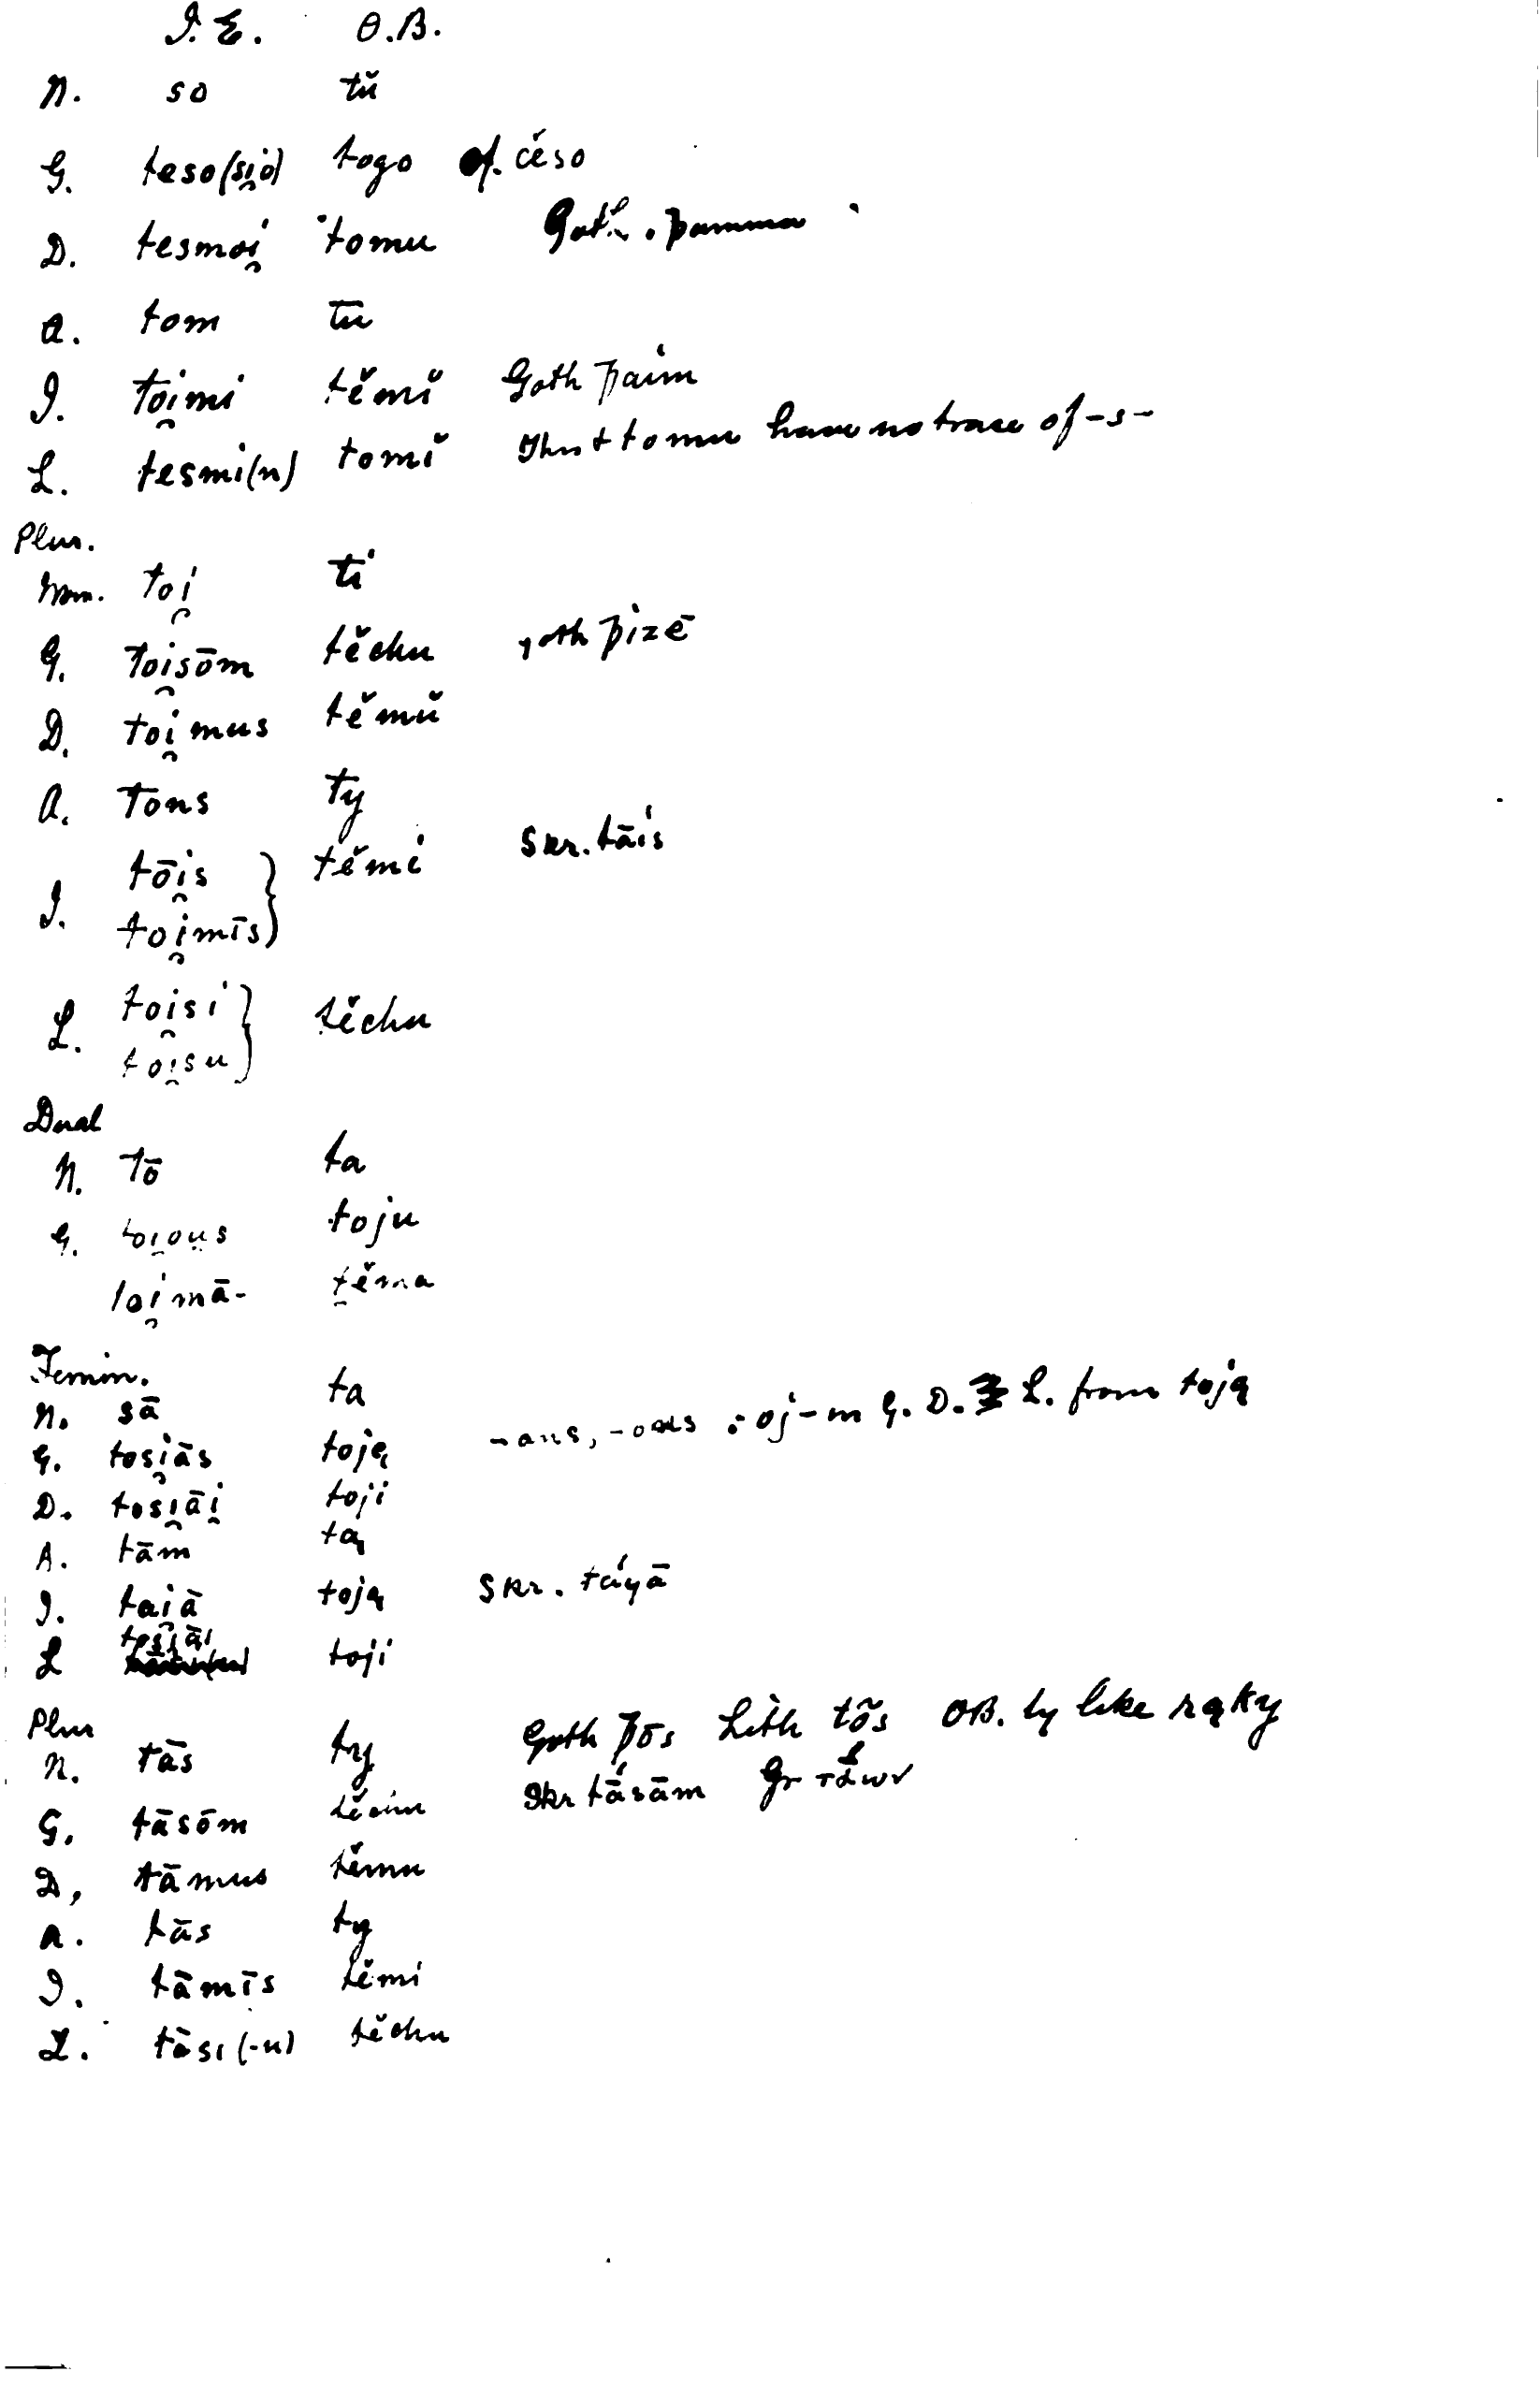 I.E. O.B.
N. so tŭ
G. teso(si̯o) togo cf. česo
D. tesmoi̯ tomu Goth. þamma
A. tom tŭ
I. toi̯mi těmĭ Goth þaim
L. tesmi(n) tomĭ This + tomu have no trace of -s-
Plur.
Nom. toi̯ ti
G. toi̯sōm těchu goth þizē
D. toi̯mus těmŭ
A. tons ty
I. tōi̯s } těmi Skr. tāis
toi̯mīs
L. toi̯si } těchu
toi̯su
Dual
N. tō ta
G. toi̯ou̯s toju
toi̯mā- těma
Femin.
N. sā ta
G. tosi̯ās toję -ans, : oj - in G. D. L. from toją
D. tosi̯āi̯ toji
A. tām tą
I. tai̯ā toją Skr. táyā
L tosi̯āi toji
Plur
N. tās ty Goth þōs Lith tõs OB. ty like rąky
G. tāsōm těchu Skr tā́sām Gr τά́ων
D. tāmus těmu
A. tās ty
I. tāmīs těmi
L. tāsi (-u) těchu